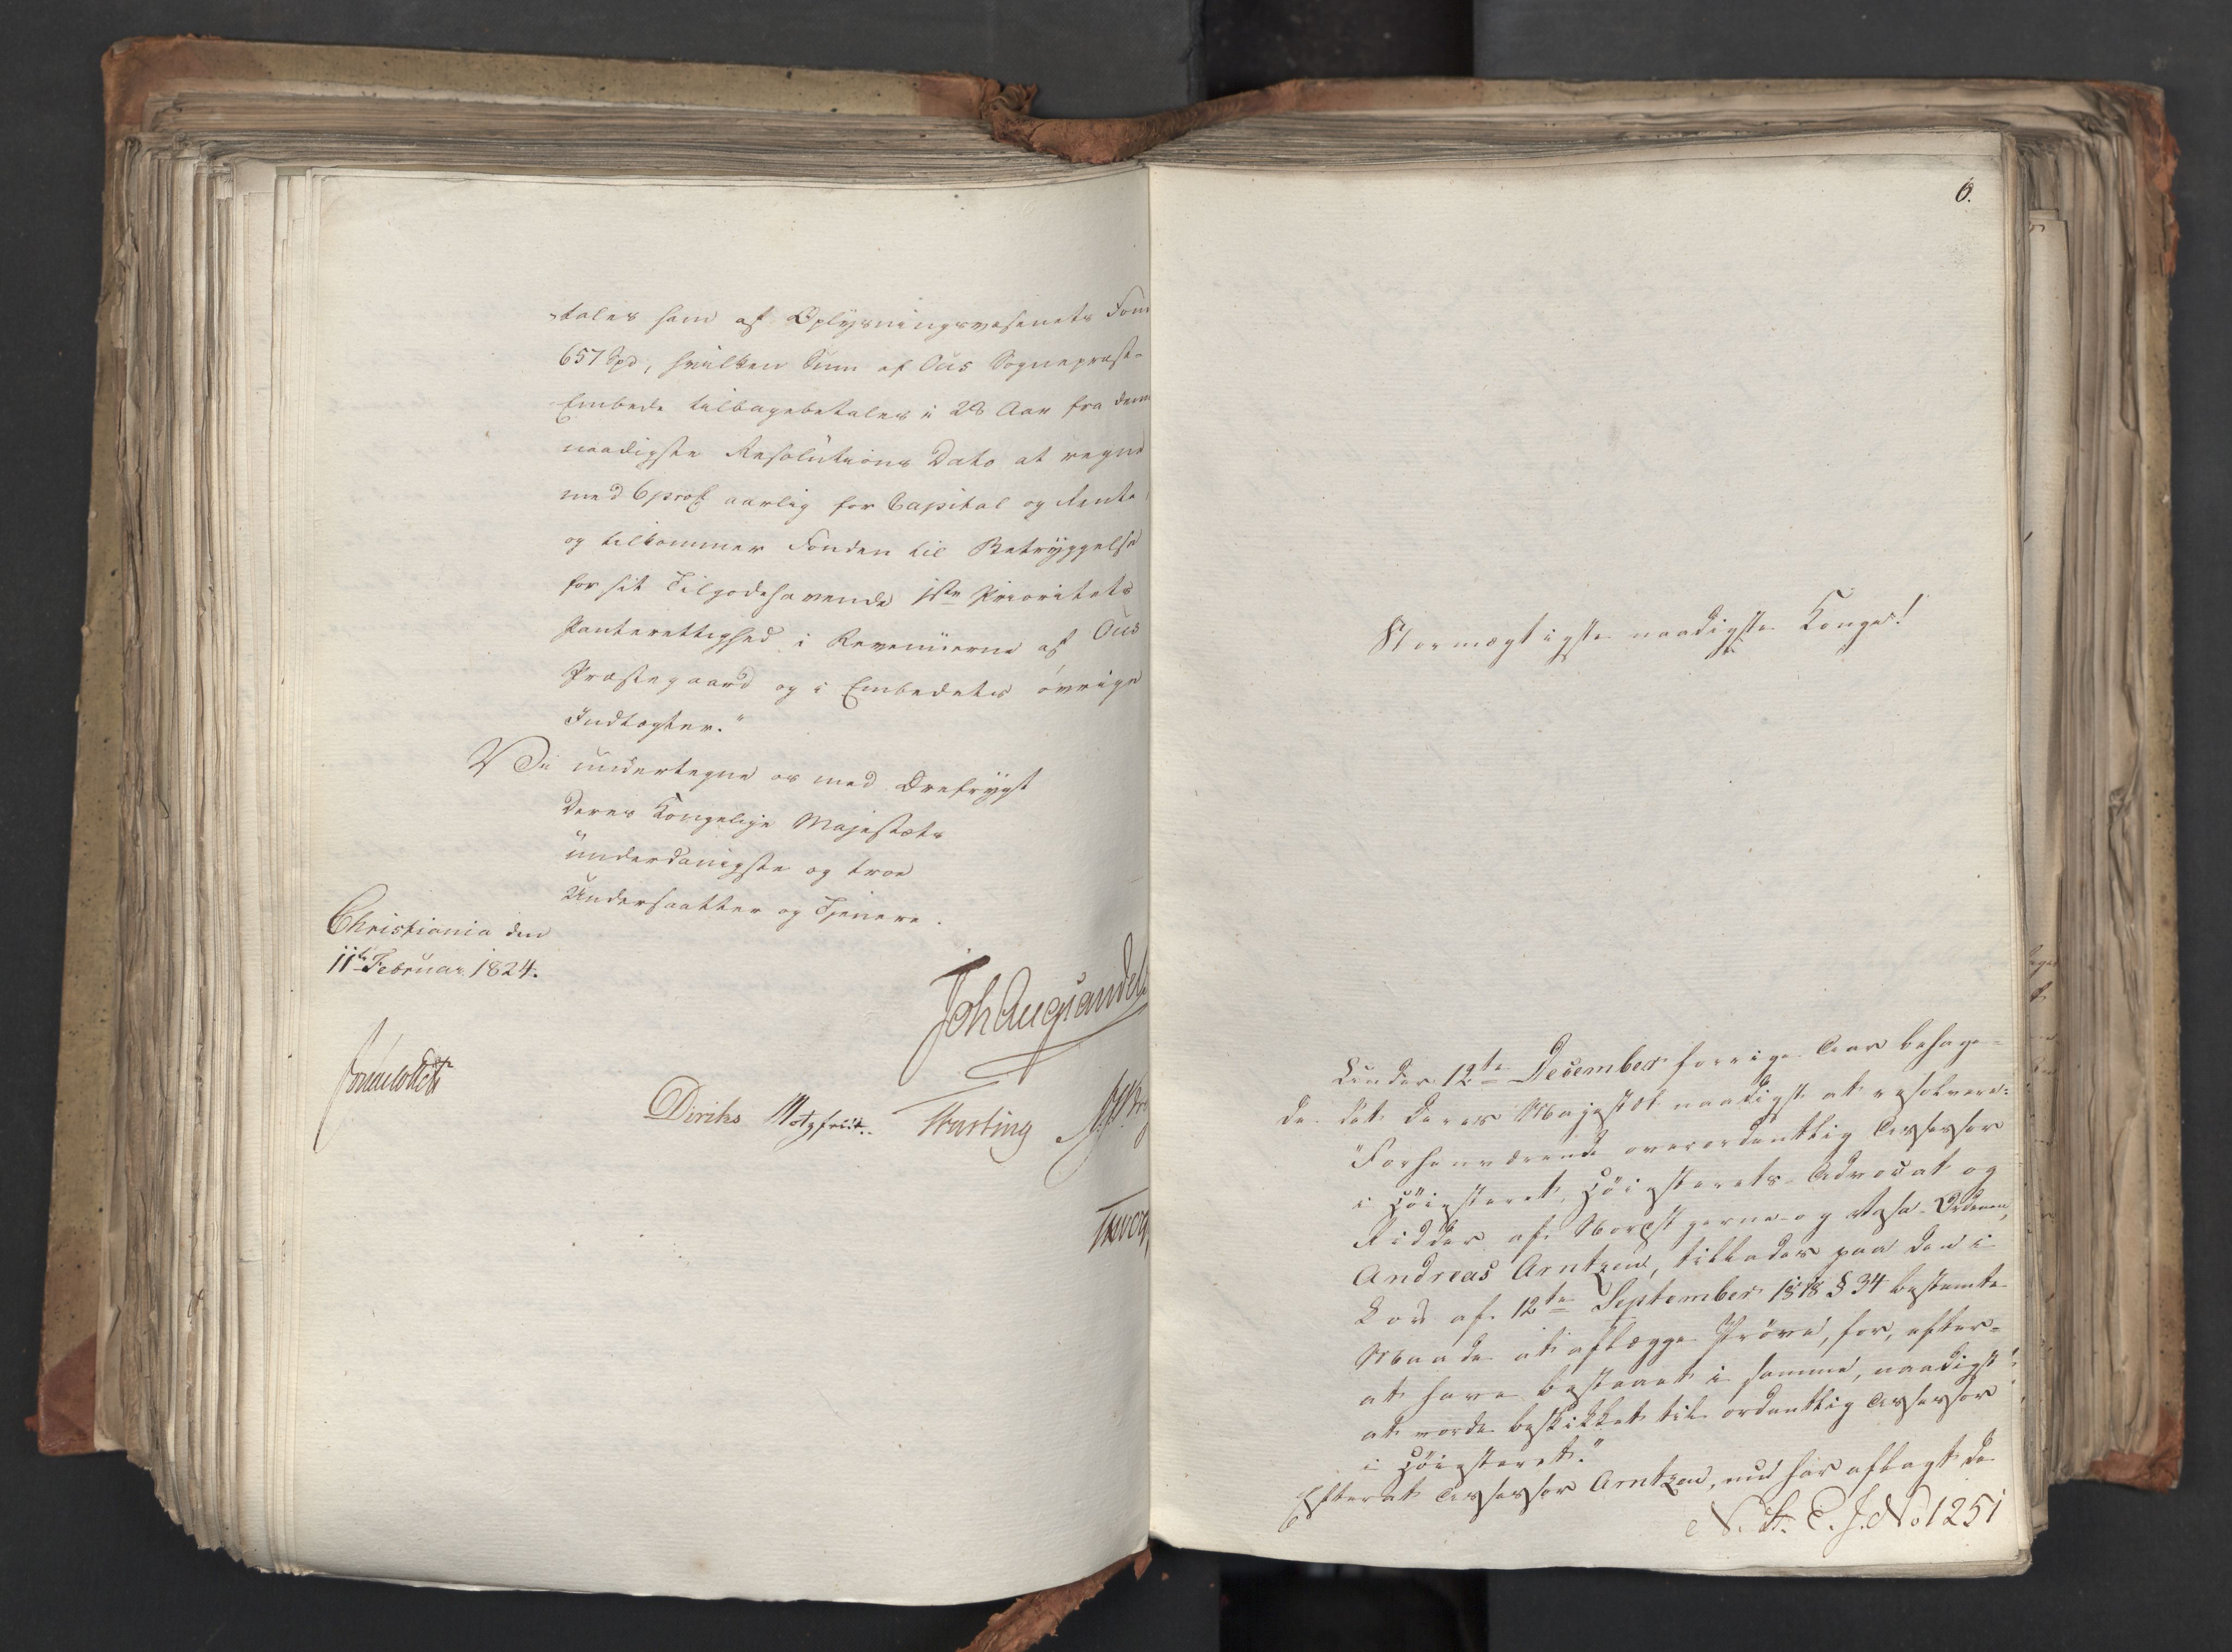 -tales ham af Oplysningsvæsenets Fon
657 Spd, hvilken Sum af Ous Sognepræst-
Embede tilbagebetales i 28 Aar fra denn
naadigste Resolutions Dato at regne
med 6 proC aarlig for Capital og Rente,
og tilkommer Fonden til Betryggelse
for sit Tilgodehavende 1ste Prioritets
Panterettighed i Revenuerne af Ous
Præstegaard og i Embedets øvrige
Indtægter."
Vi undertegne os med Ærefrygt
Deres Kongelige Majestæts
underdanigste og troe
Undersaatter og Tjenere.
Christiania den
11te Februar 1824.
Joh Aug Sandels
Diriks Motzfeldt. 
6.
Stormægtigste naadigste Konge!
Under 12te December forrige Aar behage-
de det Deres Majestæt naadigst at resolvere:
"Forhenværende overordentlig Assessor
i Höiesteret, Höiesterets-Advocat og
Ridder af Nordstjerne- og Vasa-Ordenen,
Andreas Arntzen, tillades paa den i
Lov af 12te September 1818 § 34 bestemte
Maade at aflægge Prøve, for, efter-
at have bestaaet i samme, naadigst
at vorde beskikket til ordentlig Assessor
i Höiesteret."
Efterat Assessor Arntzen, nu har aflagt de
N. S. E. J. No 1251